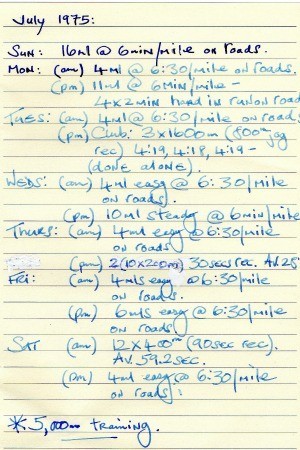 July 1975:
SUN: 16ml @ 6min/mile on roads.
MON: (am) 4ml @ 6:30/mile on roads.
(pm) 11ml @ 6min/mile -
4x2min hard in run on road
TUES: (am) 4ml @ 6:30/mile on roads.
(pm) Club: 3x1600m (800m jog
rec) 4:19, 4:18, 4:19 -
(done alone).
WEDS: (am) 4ml easy @ 6:30/mile
on roads).
(pm) 10ml steady @ 6min/mile
THURS: (am) 4ml easy @ 6:30/mile
on roads
(pm) 2(10x200m) 30secs rec. Av.25
FRI: (am) 4mls easy @ 6:30/mile
on roads.
(pm) 6mls easy @ 6:30/mile
on roads)
SAT (am) 12x400m (90sec rec).
Av. 59.2sec.
(pm) 4ml easy @ 6:30/mile
on roads:
*: 5,000m training.